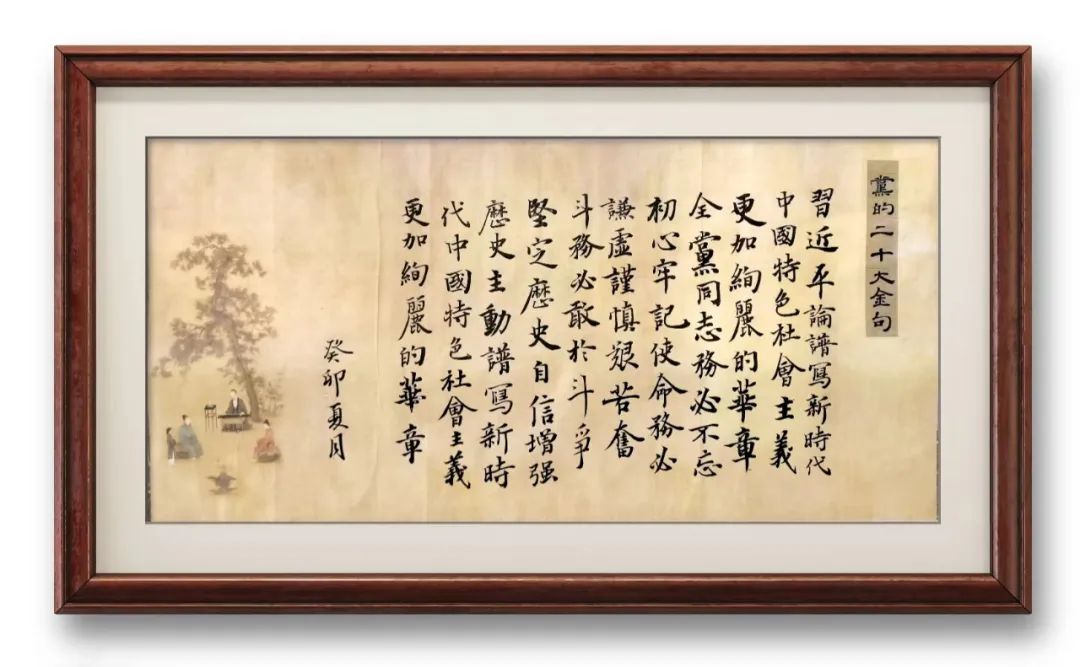 黨的二十大金句
習近平論譜寫新時代
中國特色社會主義
更加絢麗的華章
全黨同志務必不忘
初心牢記使命務必
謙虛謹慎艱苦奮
斗務必敢於斗爭
堅定歷史自信增强
歷史主動譜寫新時
代中國特色社會主義
更加絢麗的華章
癸卯夏月